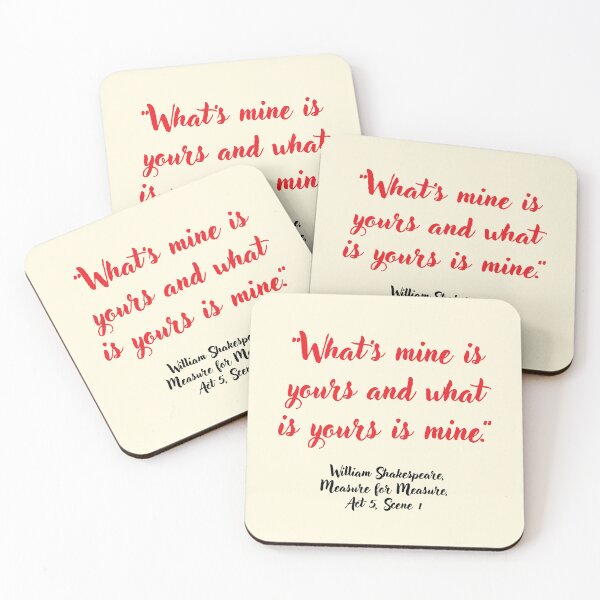 "What's mine is
yours and what
is
min
"What's mine is
yours and what
is yours is mine."
William
"What's mine is
yours and what
is yours is mine."
William Shakespeare
Measure for
Act 5, Scene
"What's mine is
yours and what
is yours is mine."
William Shakespeare,
Measure for Measure,
Act 5, Scene 1